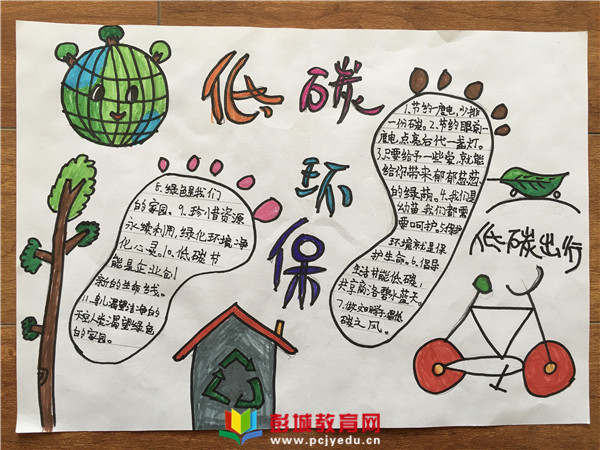 低碳
环
保
1.节约一度电,少排
一份碳。2.节约眼前一
度电,点亮后代一盏灯。
3.只要给予一些爱,就能
给你带来郁郁葱葱
的绿荫。4.我们是
幼苗,我们都要
要呵护与保护
环境就是保
护生命。6.倡导
生活节能低碳,
共享商洛碧水蓝天。
碳之风。
8.绿色是我们
的家园。9.珍惜资源
永续利用,绿化环境净
化心灵。10.低碳节
能是企业创
新的生命线。
11.鸟儿渴望洁净的
天空人类渴望绿色
的家园。
低碳出行
彭城教育网
www.pcjyedu.cn